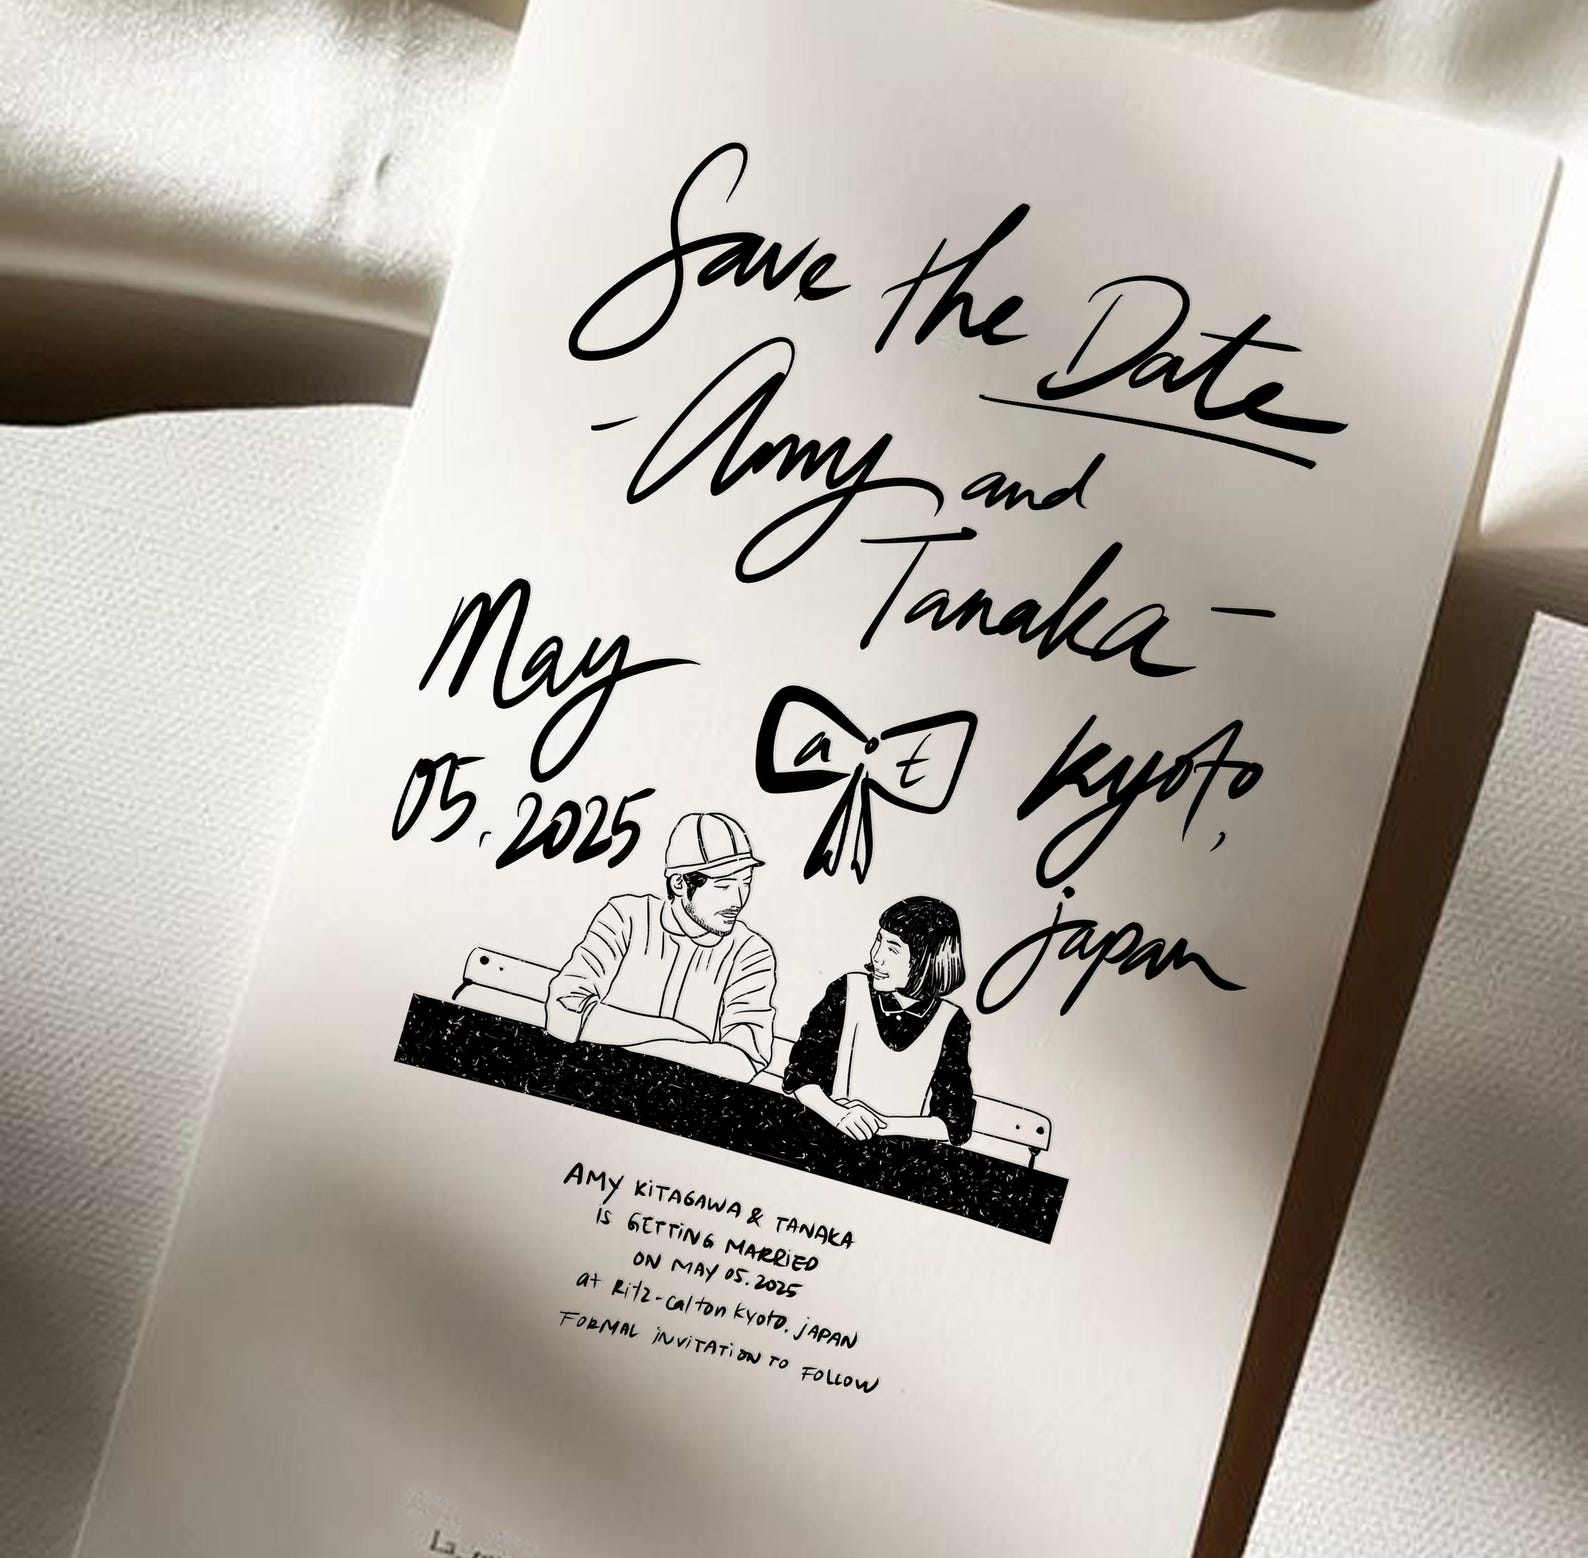 Save the Date
- Amy and
Tanaka -
May
05.2025
a t
Kyoto,
japan
AMY KiTAGAWA & TANAKA
iS GETTiNG MARRiED
ON MAY 05.2025
at Ritz-calton kyoto, jAPAN
FORMAL iNViTATiON TO FOLLOW
La